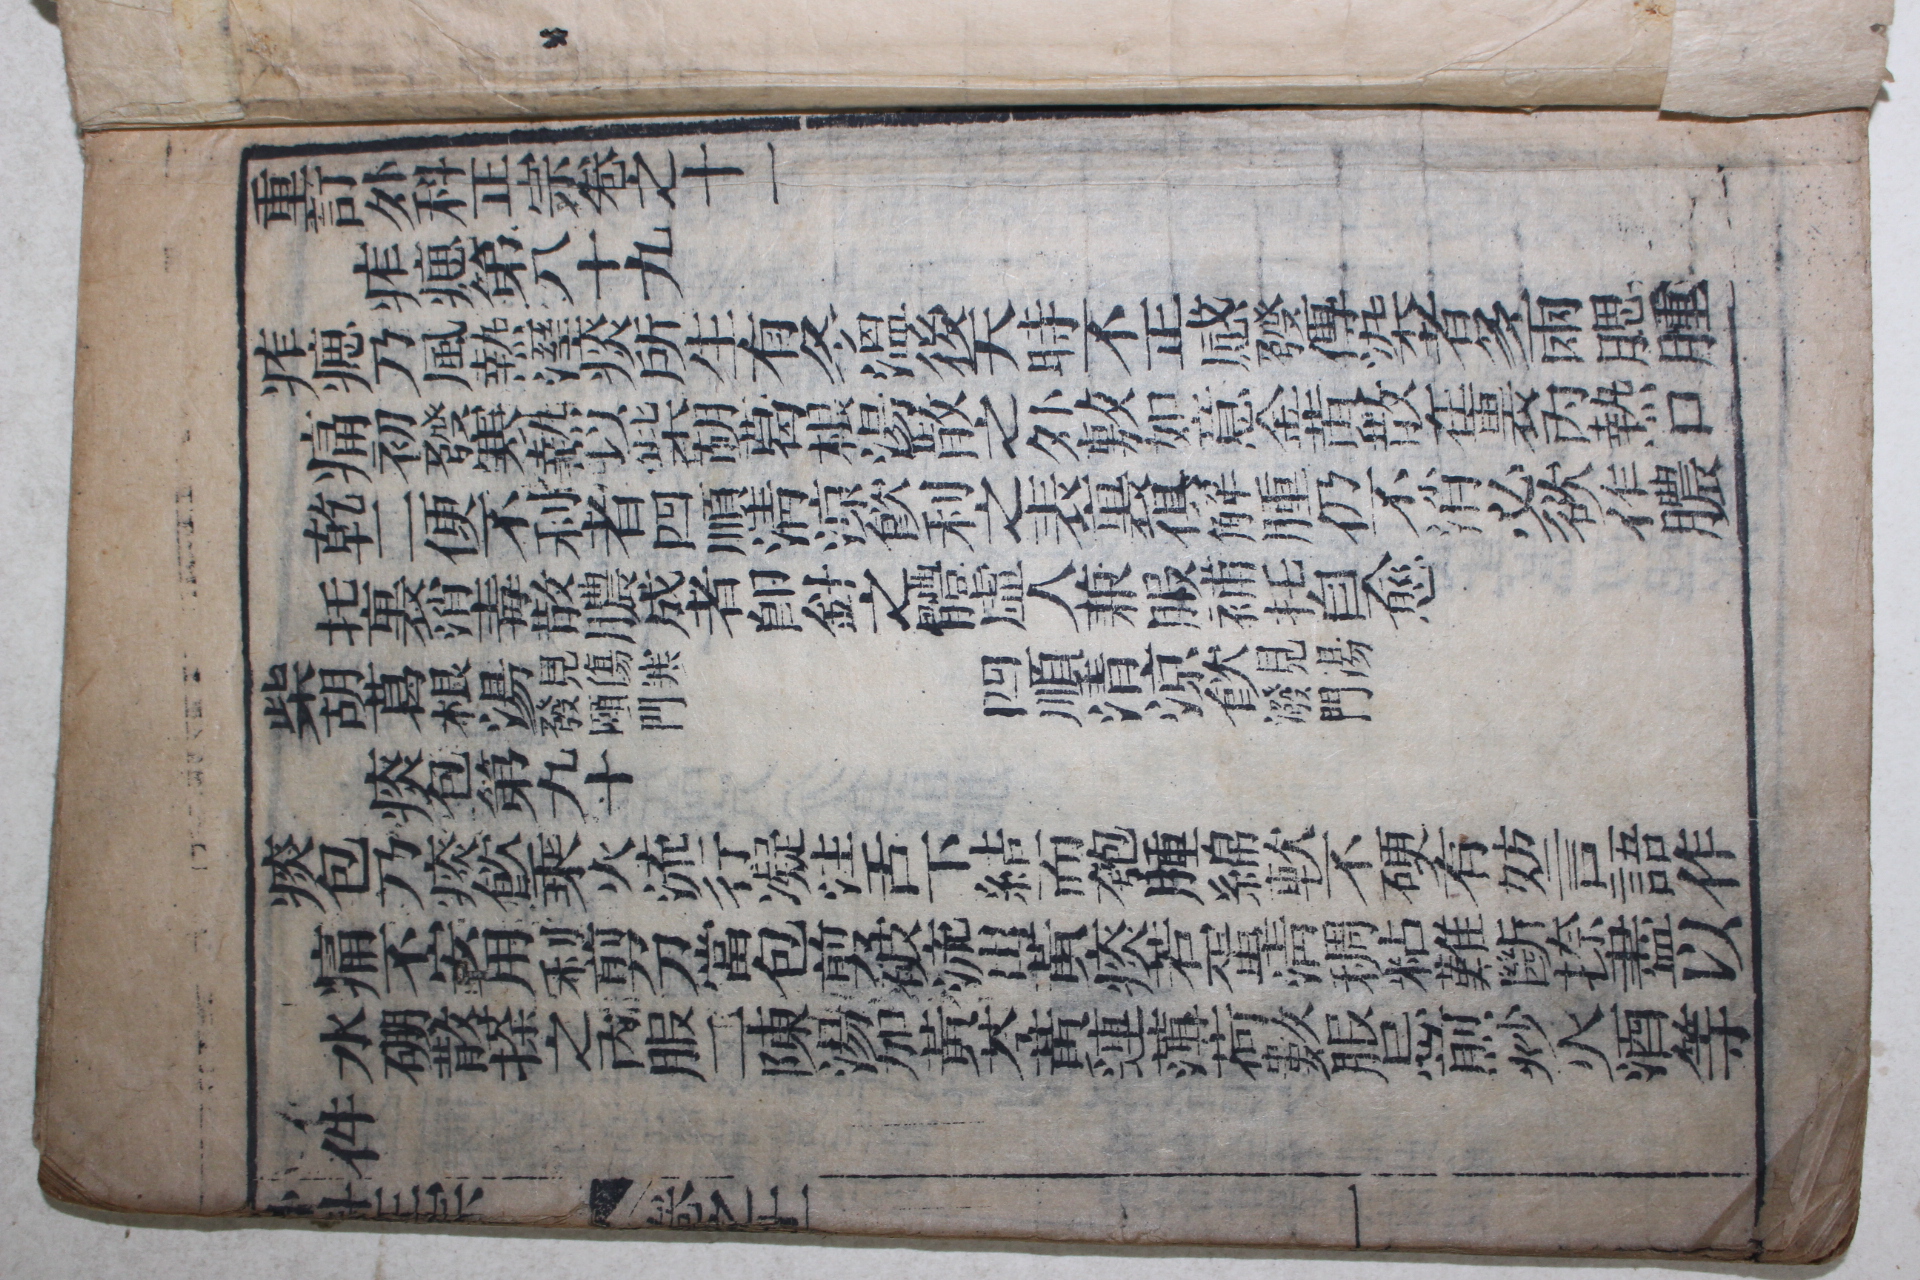 重訂外科正宗卷之十一
痄瘪第八十九
痄瘪乃風熱溼痰所生有冬溫後天時不正感發傳染者多兩腮腫
痛初發寒熱以柴胡葛根湯散之外敷如意金黃散在裏內熱口
乾二便不利者四順清涼飲利之表裏俱解腫仍不消必欲作膿
托裏消毒散膿成者即針之體虛人兼服補托自愈
柴胡葛根湯見傷寒發頤門 四順清涼飲見湯潑門
痰包第九十
痰包乃痰飲乘火流行凝注舌下結而匏腫綿軟不硬有妨言語作
痛不安用利剪刀當包剪破流出黃痰若蛋清稠粘難斷捺盡以
水硼散搽之內服二陳湯加黃芩黃連薄荷數服忌煎炒火酒等
件
外科正宗 卷之十一 一